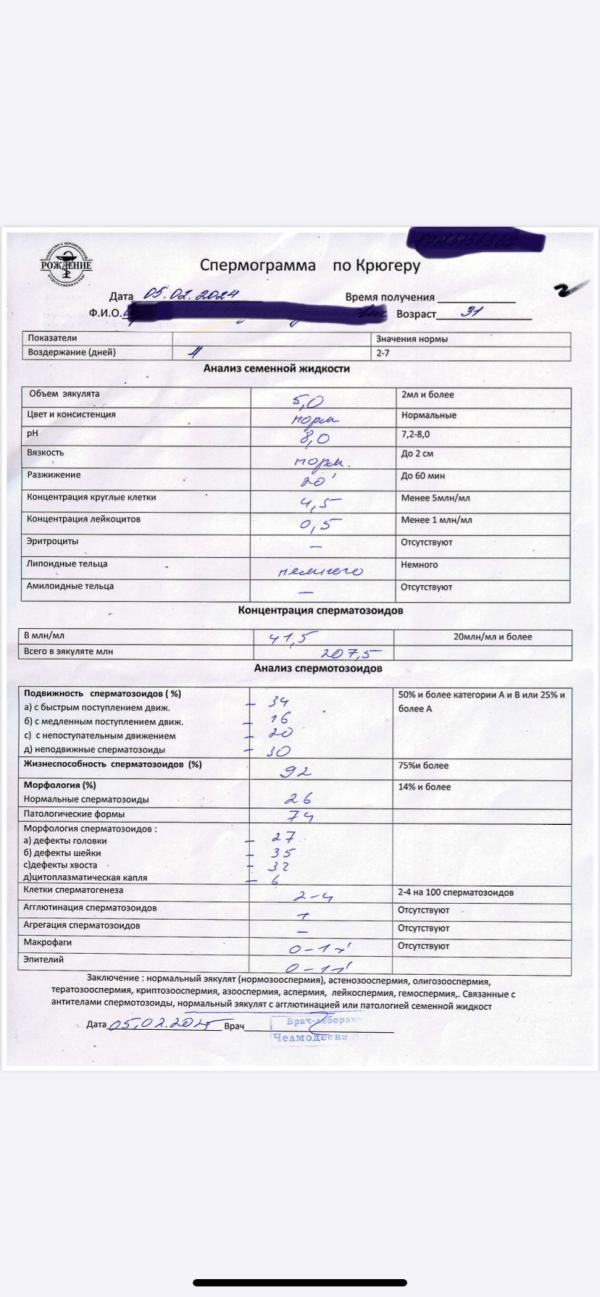 РОЖДЕНИЕ
2
Спермограмма по Крюгеру
Дата 05.02.2024 Время получения
Ф.И.О. Возраст 31
Показатели Значения нормы
Воздержание (дней) 4 2-7
Анализ семенной жидкости
Объем эякулята 5,0 2мл и более
Цвет и консистенция норм Нормальные
pH 8,0 7,2-8,0
Вязкость норм. До 2 см
Разжижение 20' До 60 мин
Концентрация круглые клетки 4,5 Менее 5млн/мл
Концентрация лейкоцитов 0,5 Менее 1 млн/мл
Эритроциты — Отсутствуют
Липоидные тельца немного Немного
Амилоидные тельца — Отсутствуют
Концентрация сперматозоидов
В млн/мл 41,5 20млн/мл и более
Всего в эякуляте млн 207,5
Анализ спермотозоидов
Подвижность сперматозоидов ( %) 50% и более категории А и В или 25% и более А
а) с быстрым поступлением движ. – 34
б) с медленным поступлением движ. – 16
с) с непоступательным движением – 20
д) неподвижные сперматозоиды – 30
Жизнеспособность сперматозоидов (%) 92 75%и более
Морфология (%) 14% и более
Нормальные сперматозоиды 26
Патологические формы 74
Морфология сперматозоидов :
а) дефекты головки – 27
б) дефекты шейки – 35
с)дефекты хвоста – 32
д)цитоплазматическая капля – 6
Клетки сперматогенеза 2-4 2-4 на 100 сперматозоидов
Агглютинация сперматозоидов + Отсутствуют
Агрегация сперматозоидов – Отсутствуют
Макрофаги 0-1 Отсутствуют
Эпителий 0-1
Заключение : нормальный эякулят (нормозооспермия), астенозооспермия, олигозооспермия,
тератозооспермия, криптозооспермия, азооспермия, аспермия, лейкоспермия, гемоспермия,. Связанные с
антителами спермотозоиды, нормальный эякулят с агглютинацией или патологией семенной жидкост
Дата 05.02.2024 Врач
Врач-лаборант
Челмодеева